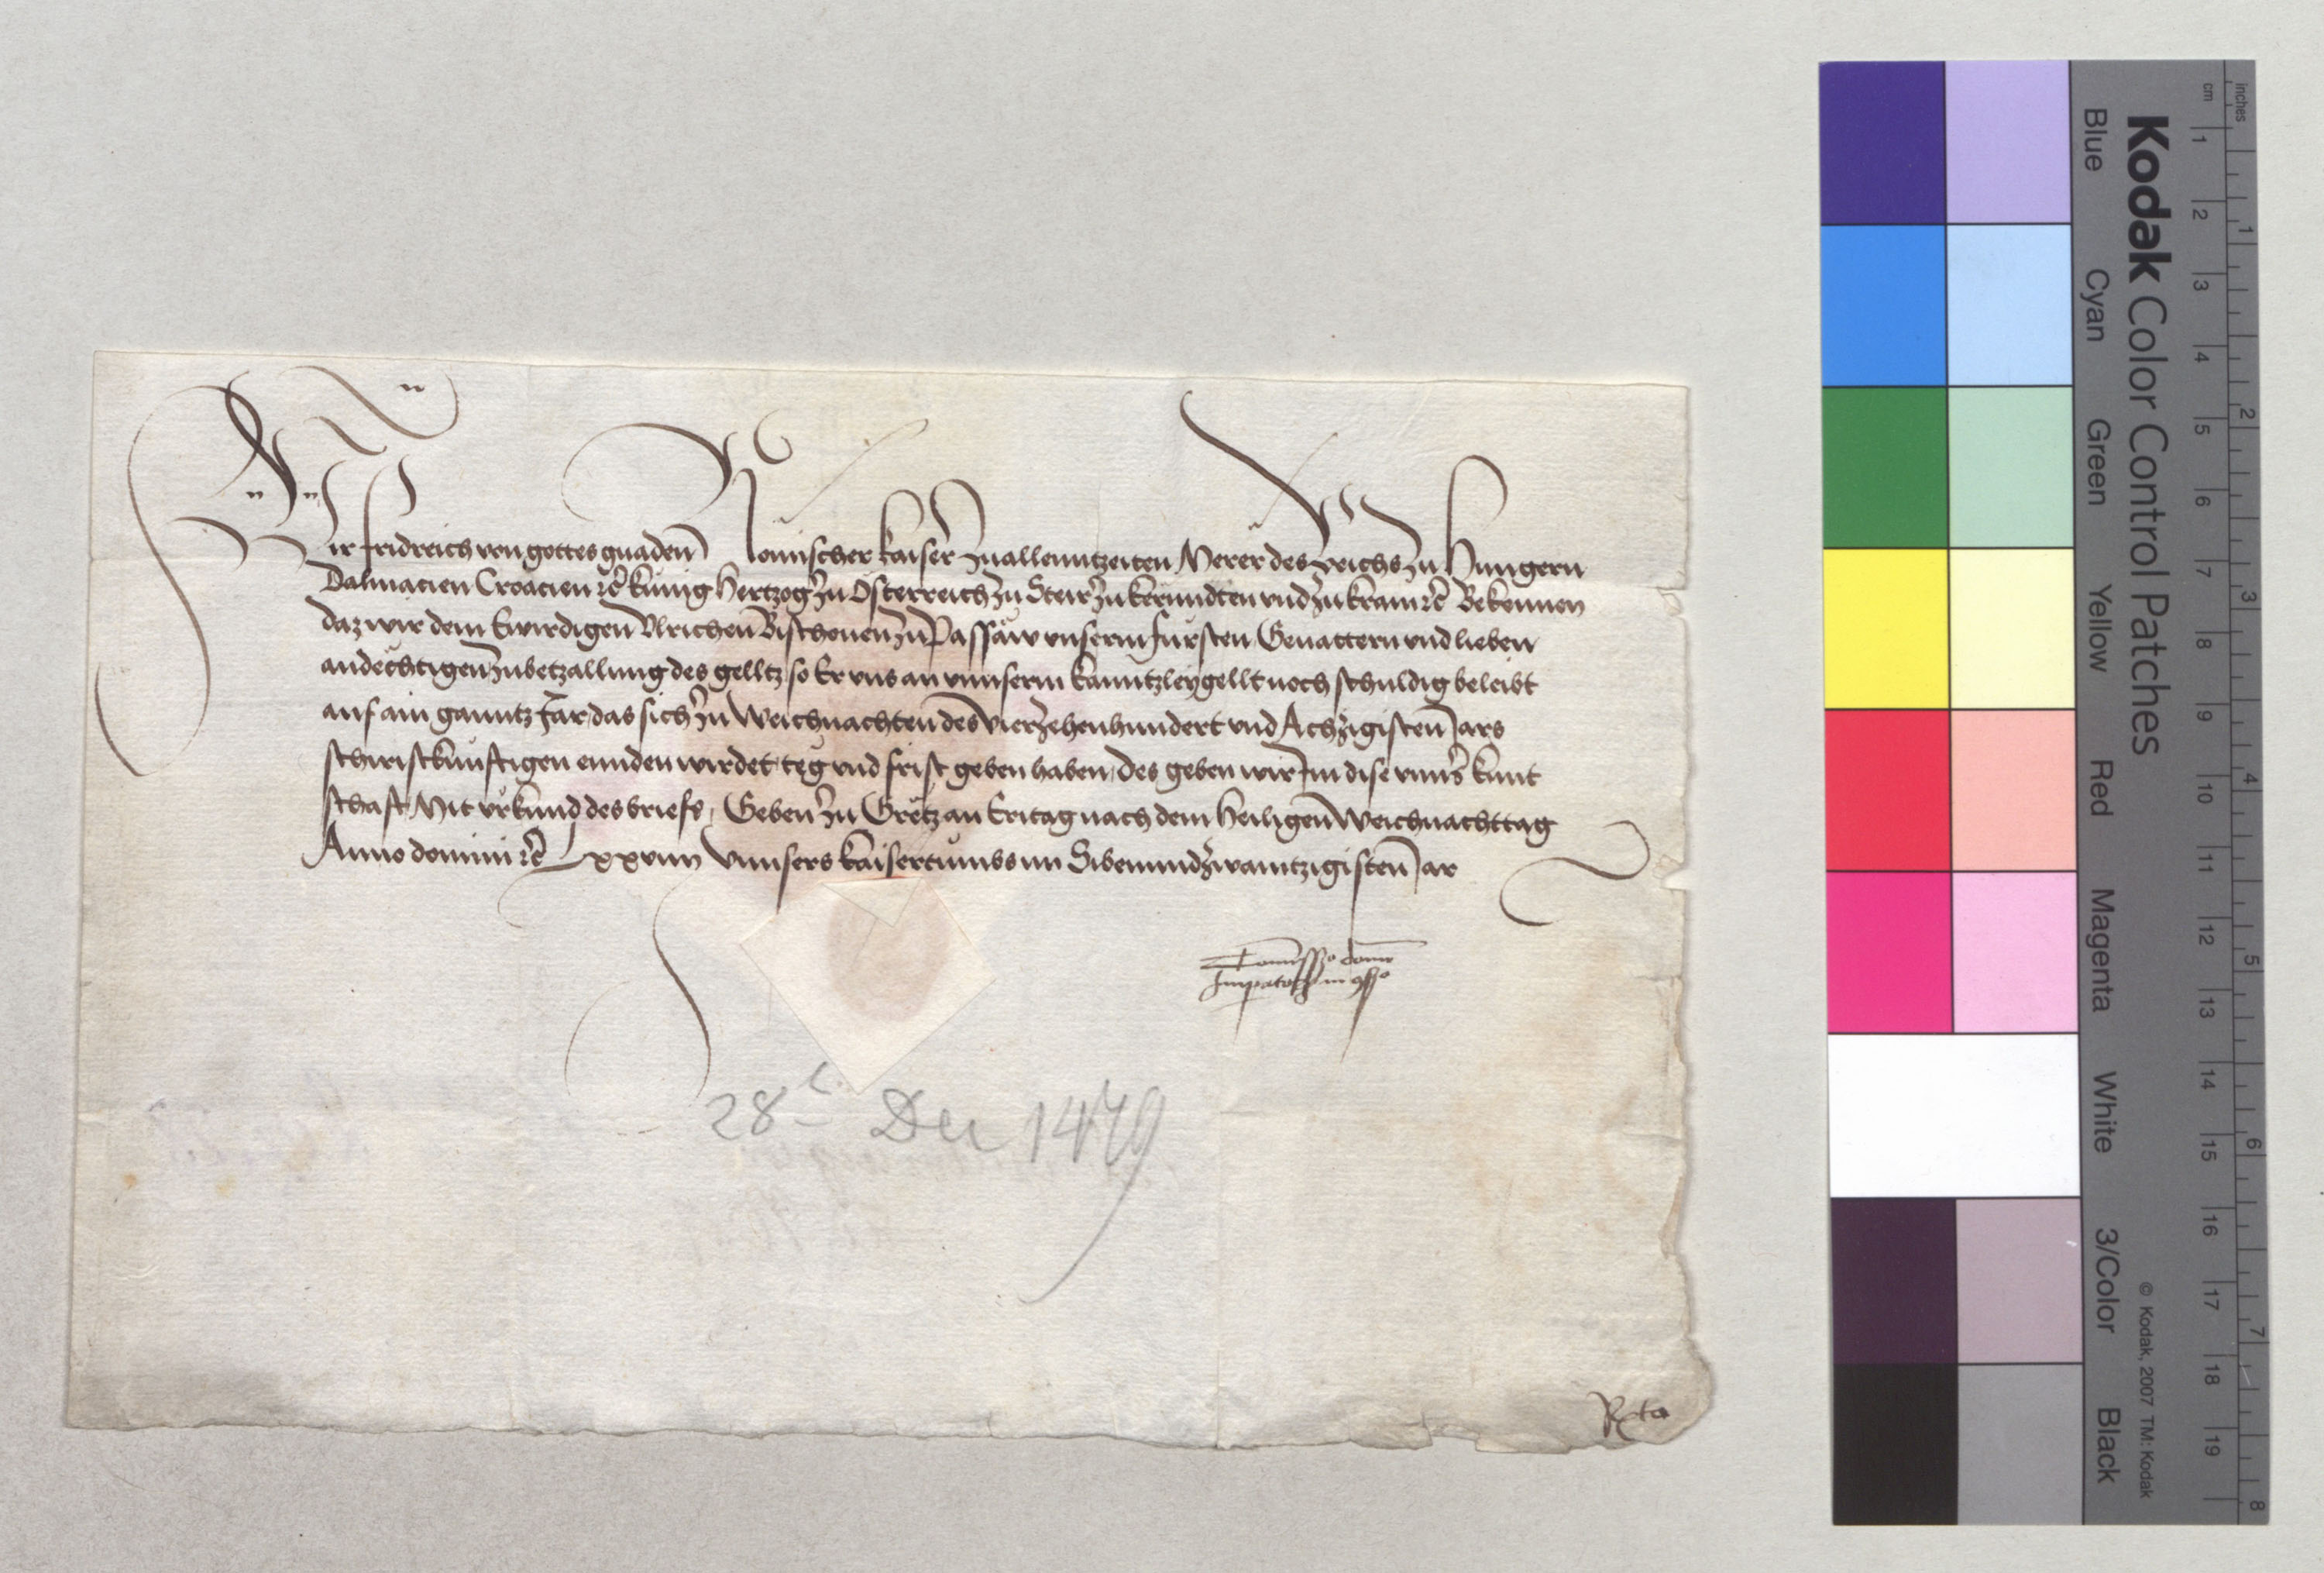 Wir Fridreich von gottes gnaden Romischer kaiser zuallenntzeiten Merer des Reichs zu Hungern
Dalmacien Croacien ꝛc̃ kunig Hertzog zu Osterreich zu Steir zu kernndten vnd zu krain ꝛc̃ Bekennen
daz wir dem Erwirdigen Vlrichen Bischouen zu Passaw vnserm fürsten Geuattern vnd lieben
andechtigen zubetzallung des gelltz so Er vns an vnnserm kanntzleygellt noch schuldig beleibt
auf ain ganntz Jar das sich zu Weichnachten des vierzehenhundert vnd Achzigisten Jars
schiristkunftigen ennden wirdet teg vnd frist geben haben, des geben wir Im dise vnns̃ kunt
schaft Mit vrkund des briefs, Geben zu Gretz an Eritag nach dem heiligen Weichnachttag
Anno domini ꝛc̃ Lxxviiii Vnnsers kaisertumbs im Sibenundzwanntzigisten Jar
Com̃issio domĩ
Imꝑatoris in ꝯsᵒ
28 Dec 1479
Rta
Kodak Color Control Patches
Blue Cyan Green Yellow Red Magenta White 3/Color Black
© Kodak, 2007 TM: Kodak
cm 1 2 3 4 5 6 7 8 9 10 11 12 13 14 15 16 17 18 19
inches 1 2 3 4 5 6 7 8